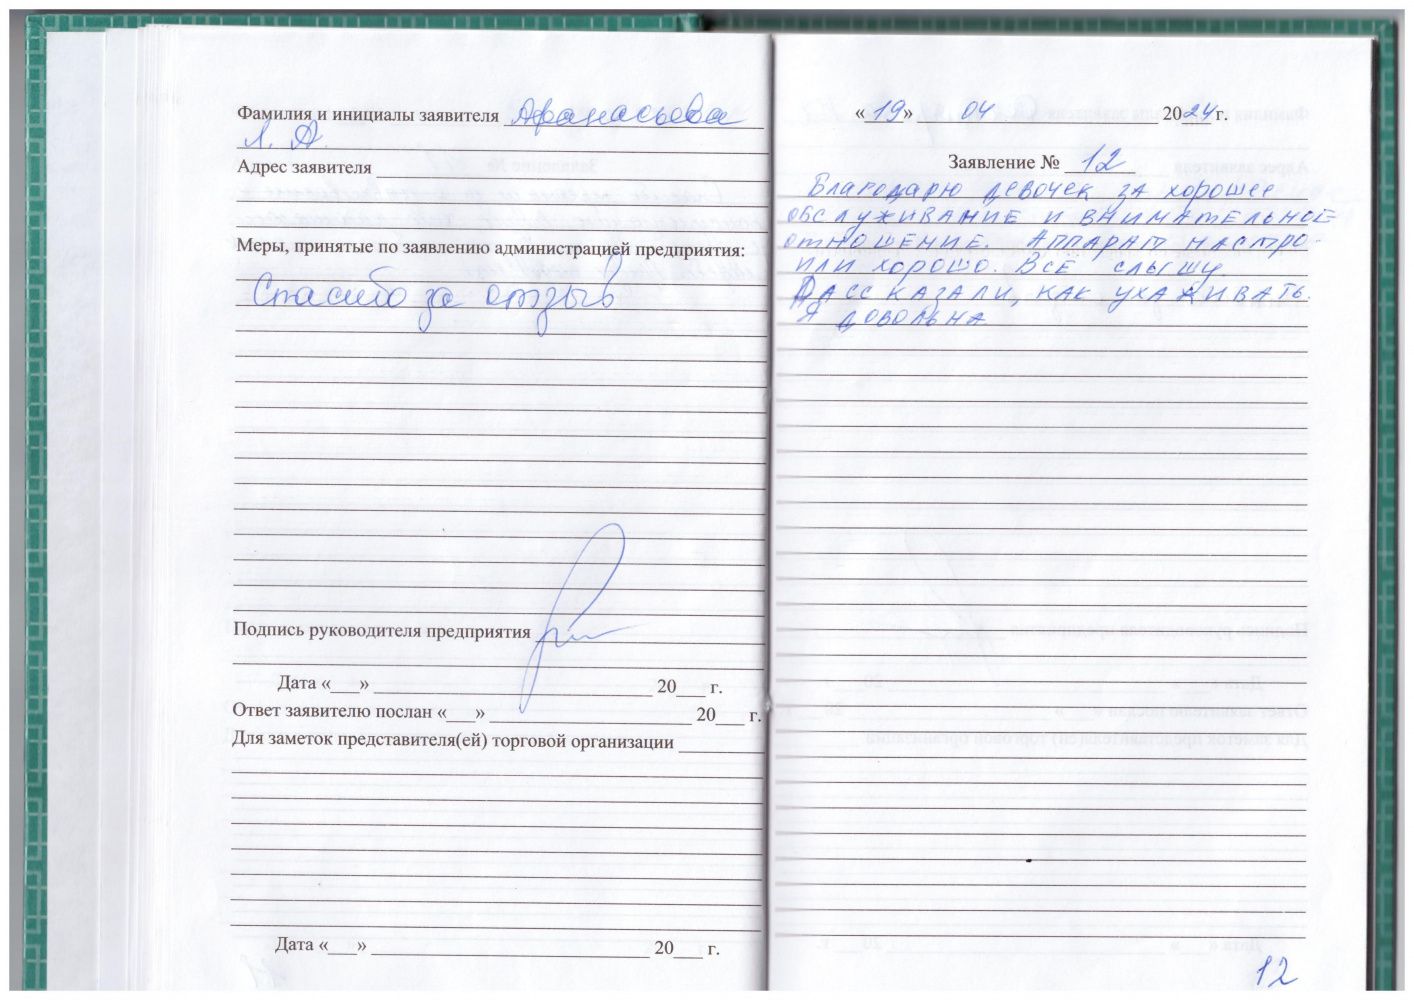 Фамилия и инициалы заявителя Афанасьева
Л. А.
Адрес заявителя
Меры, принятые по заявлению администрацией предприятия:
Спасибо за отзыв
Подпись руководителя предприятия
Дата «___» ____________ 20___ г.
Ответ заявителю послан «___» ____________ 20___ г.
Для заметок представителя(ей) торговой организации
Дата «___» ____________ 20___ г.
«19» 04 2024 г.
Заявление № 12
Благодарю девочек за хорошее
обслуживание и внимательное
отношение. Аппарат настро-
или хорошо. Всё слышу.
Рассказали, как ухаживать.
Я довольна
12